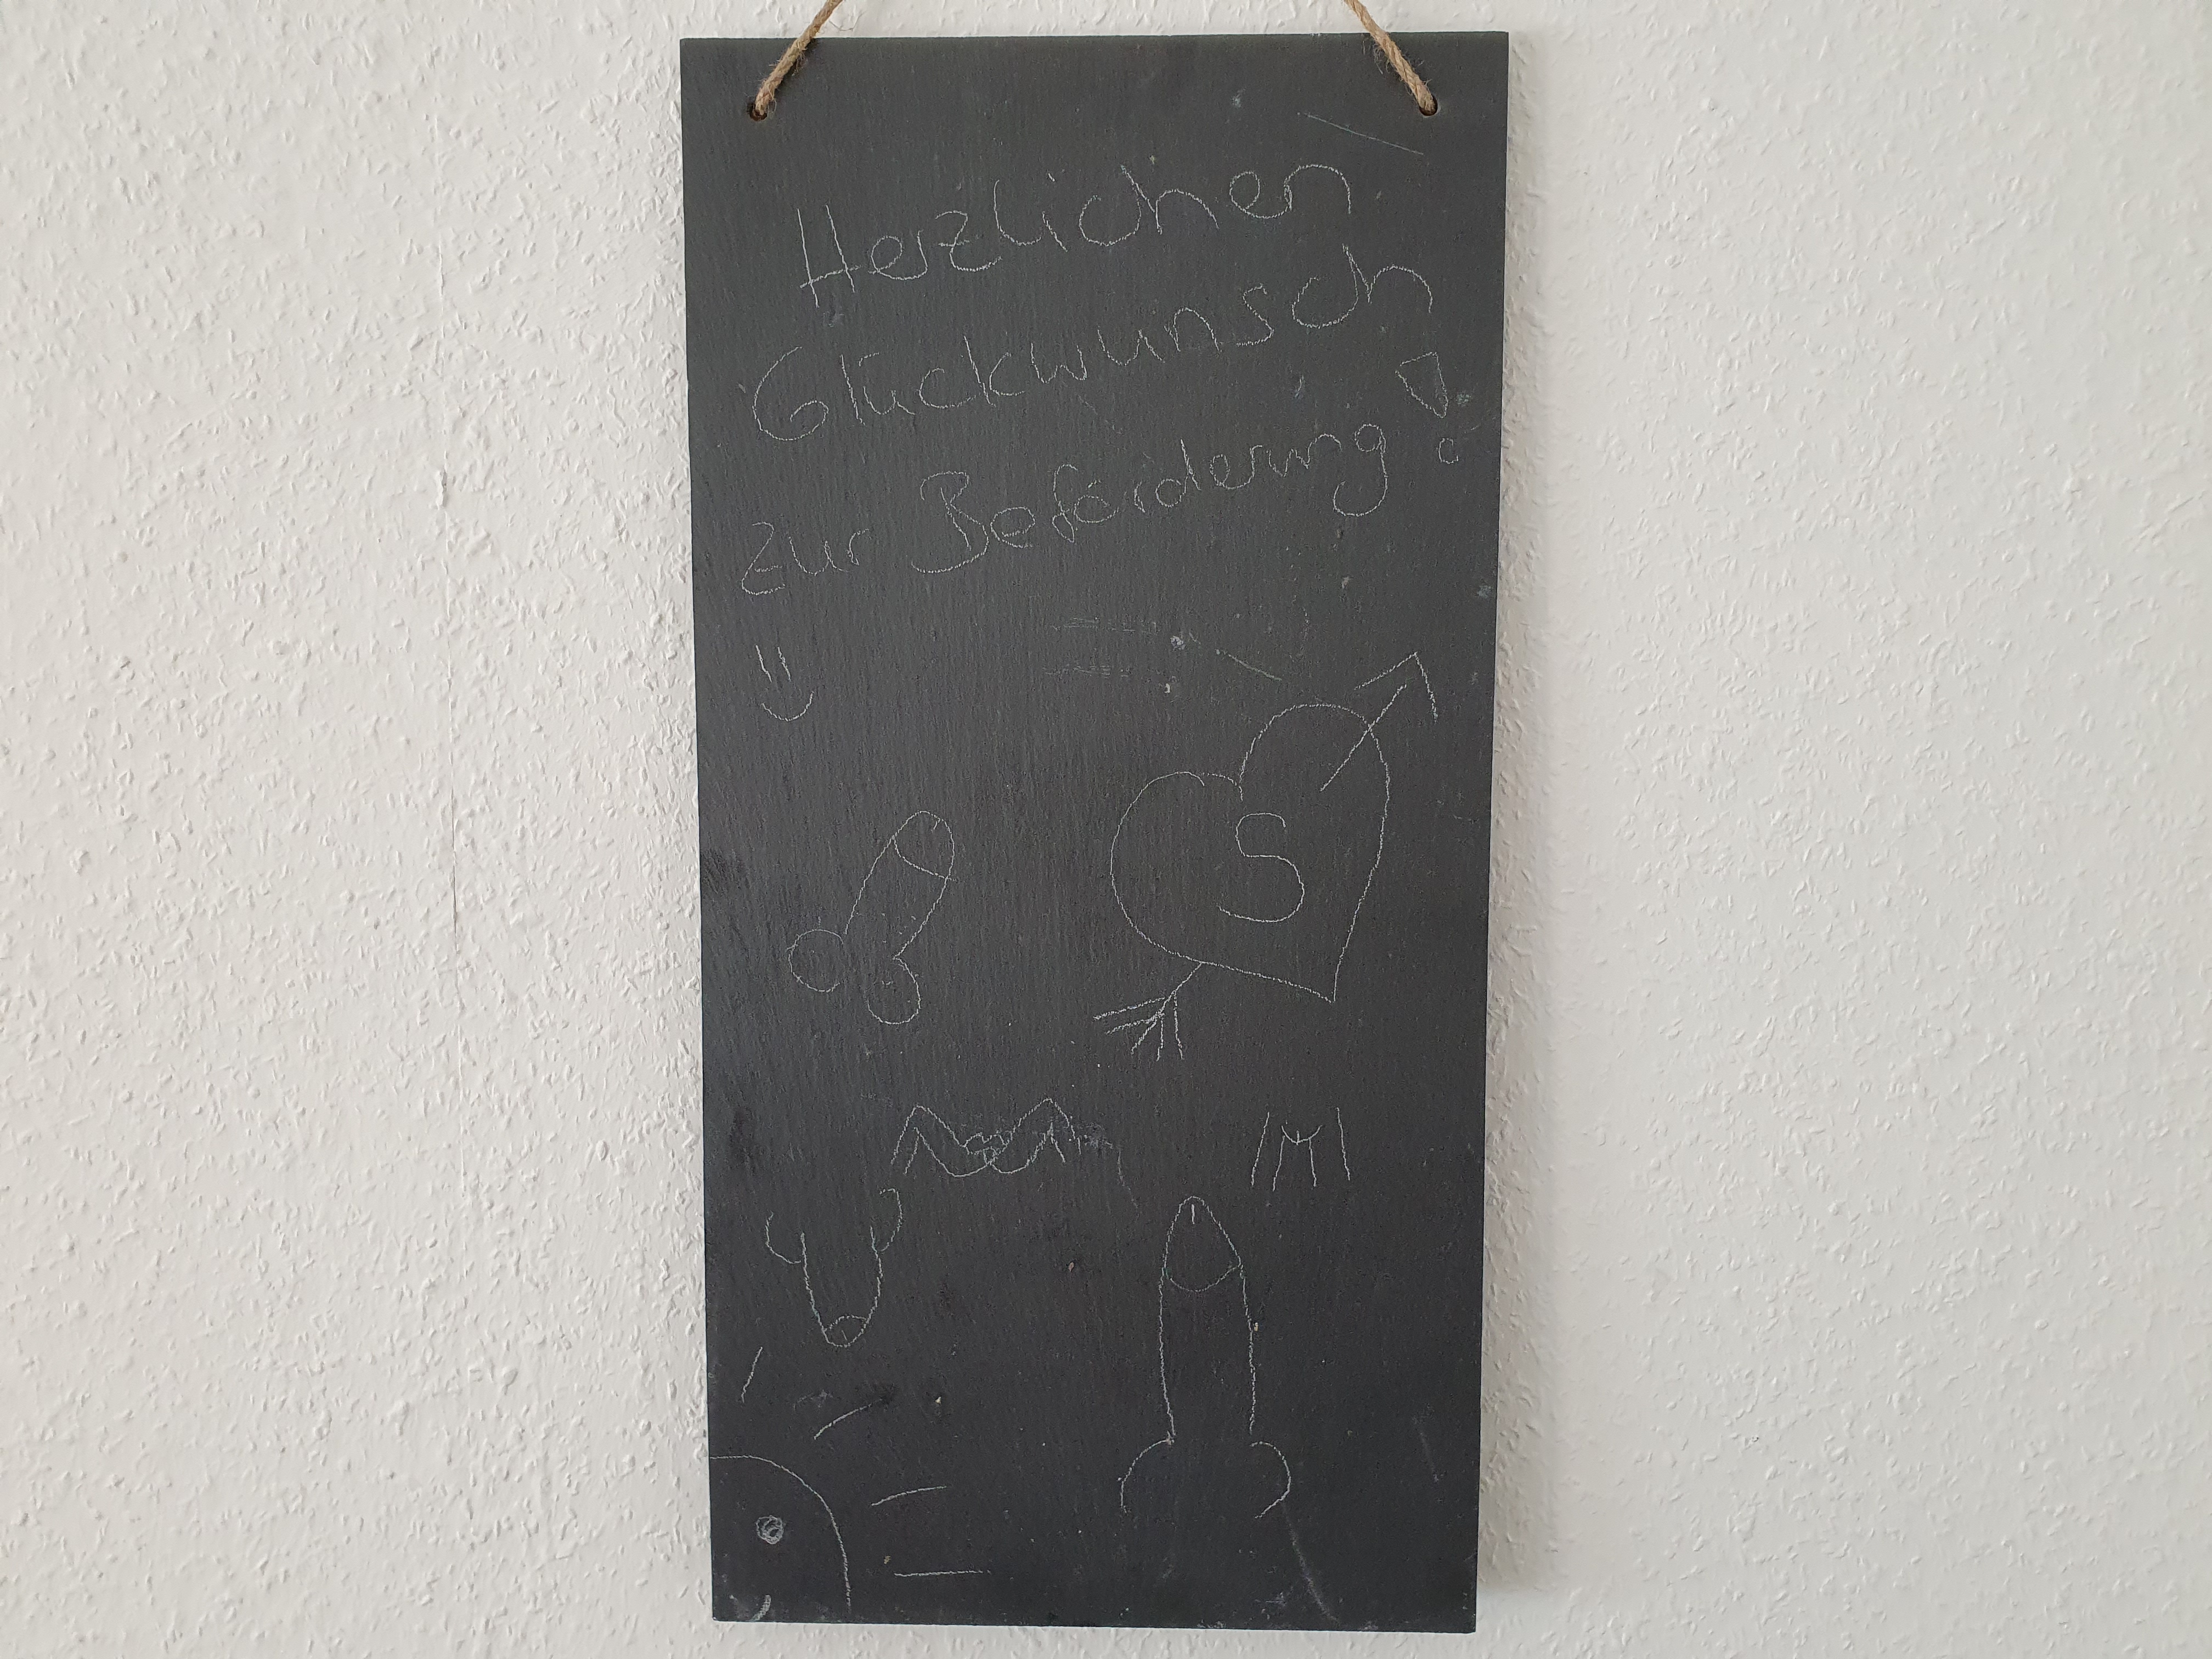 Herzlichen
Glückwunsch
zur Beförderung!
S